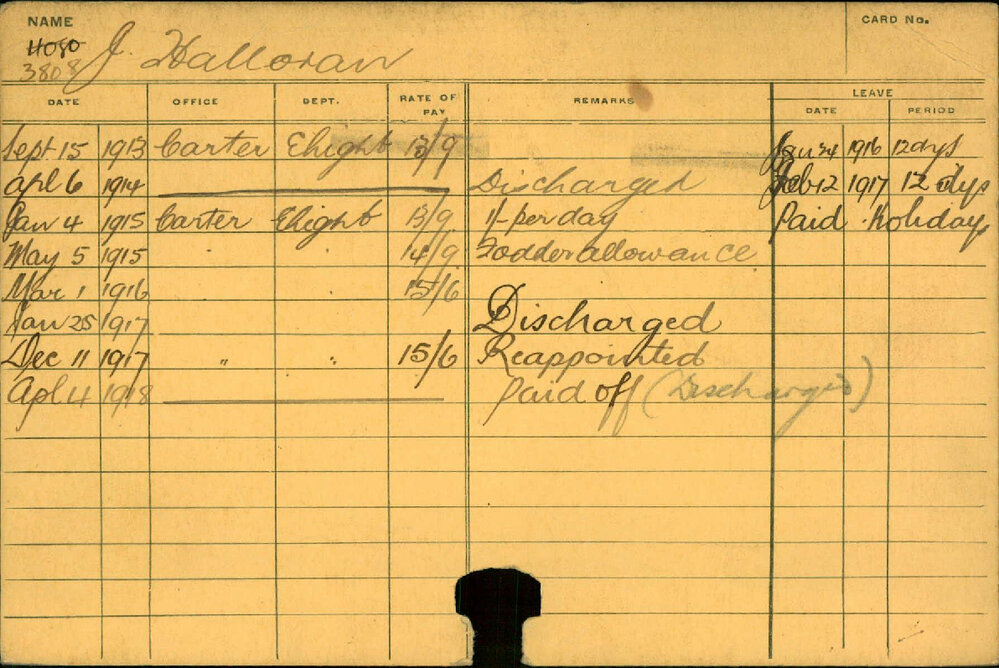 NAME
CARD No.
4080
3808 J. Halloran
LEAVE
DATE OFFICE DEPT. RATE OF PAY REMARKS DATE PERIOD
Sept 15 1913 Carter Elight 13/9 Jan 24 1916 12 dys
Apl 6 1914 Discharged Feb 12 1917 12 dys
Jan 4 1915 Carter Elight 13/9 1/- per day Paid Holiday
May 5 1915 " 14/9 Fodder allowance
Mar 1 1916 15/6
Jan 25 1917 Discharged
Dec 11 1917 " " 15/6 Reappointed
Apl 4 1918 Paid off (Discharged)